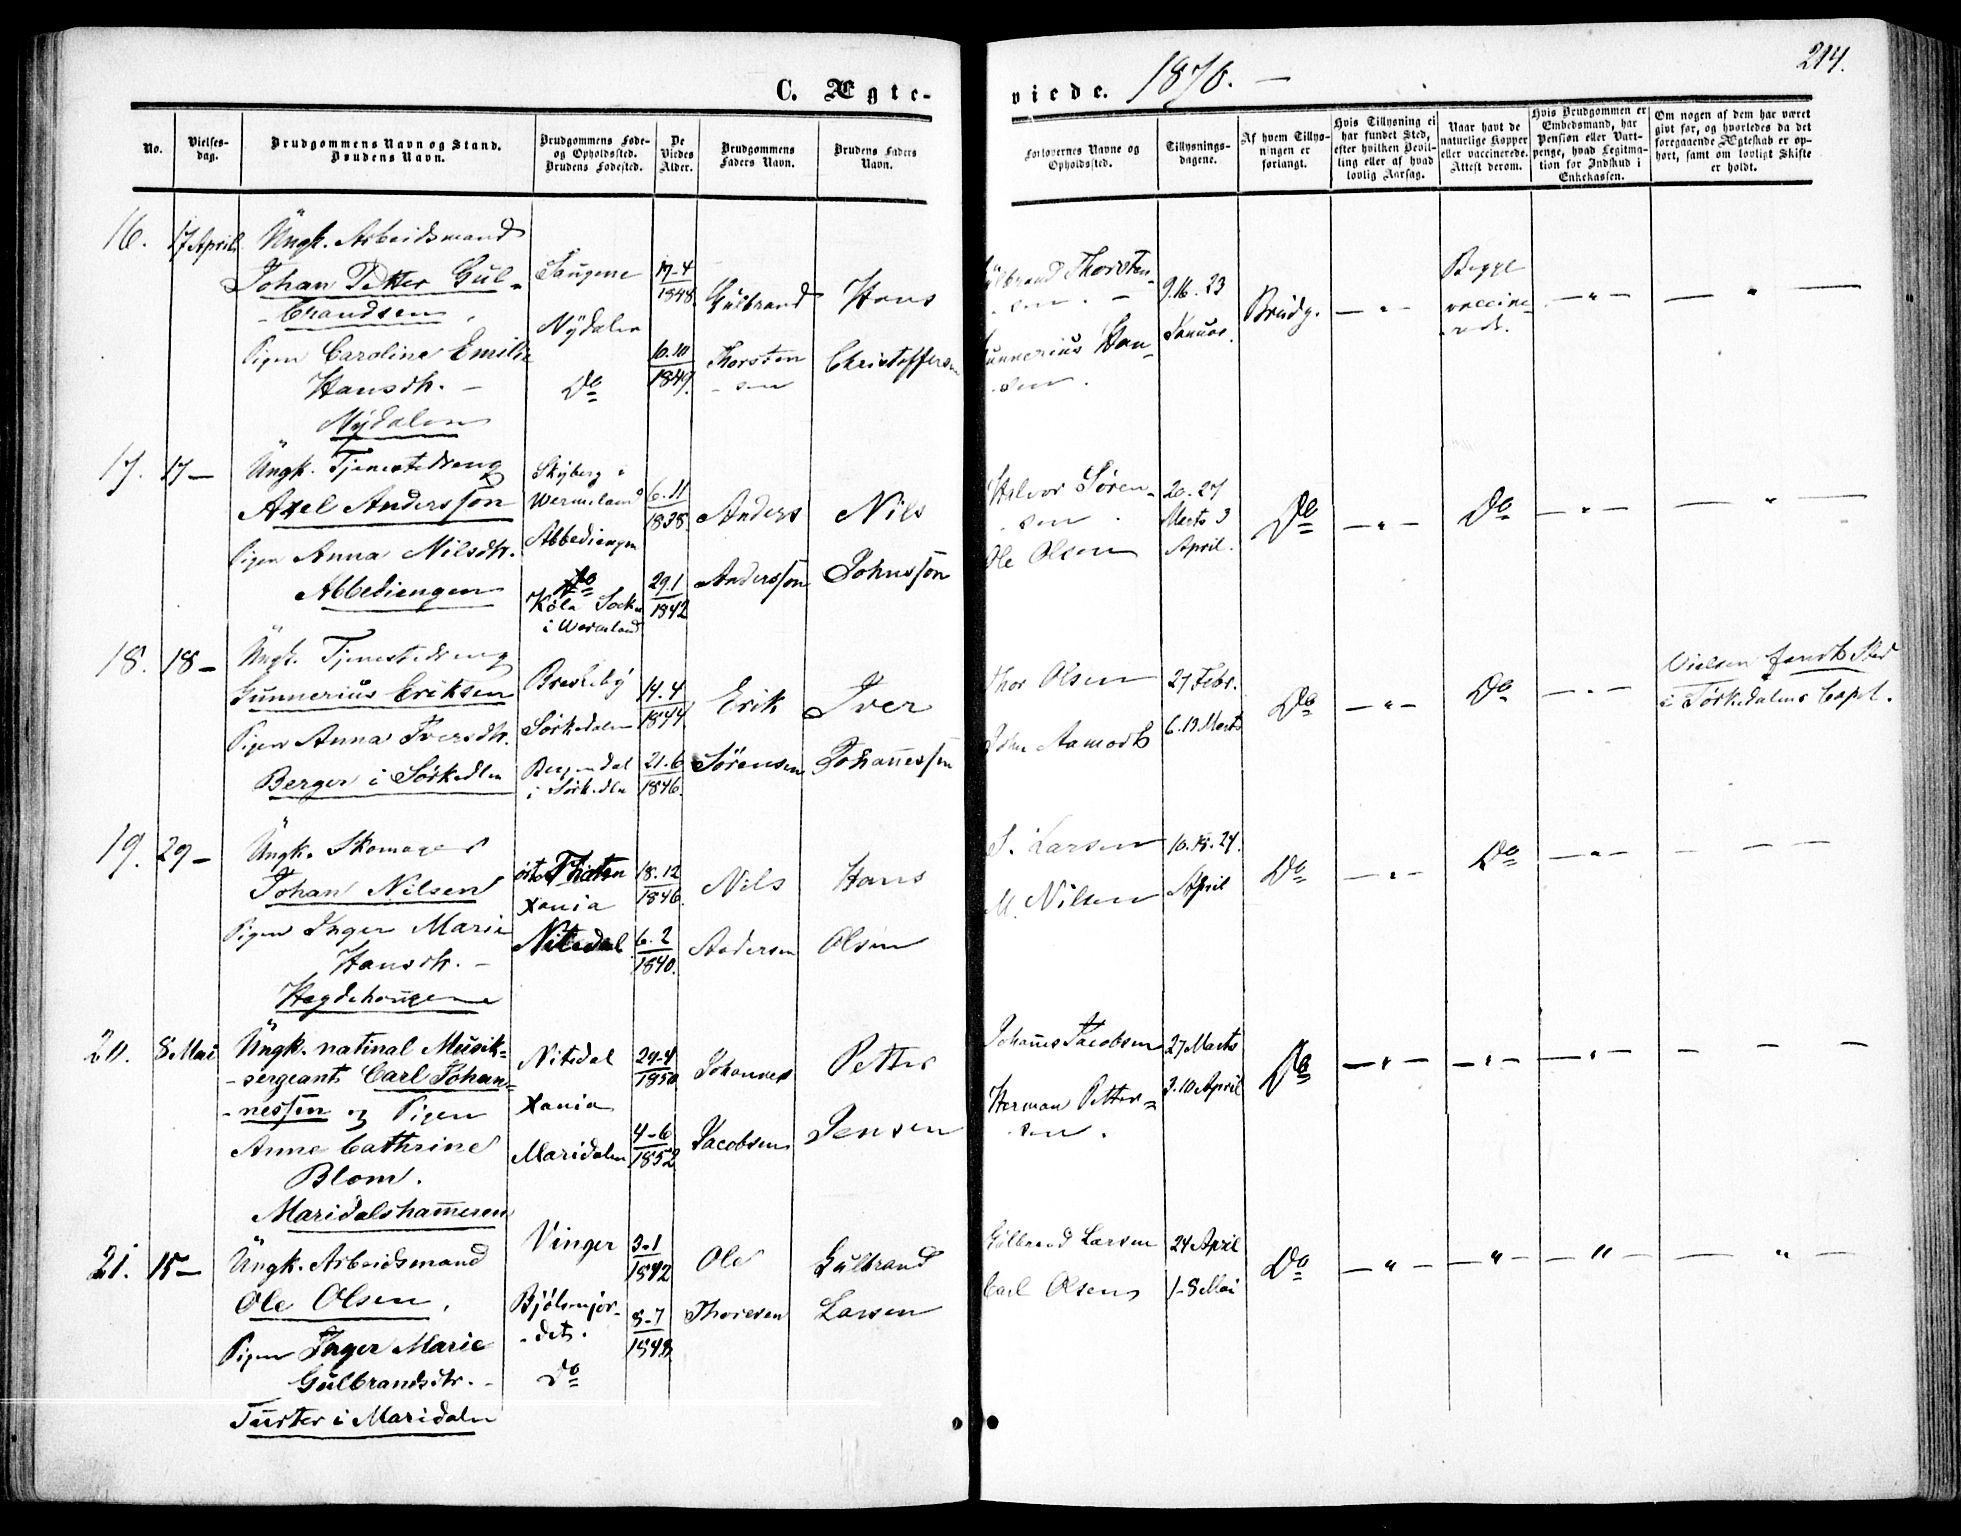 C. Ægte-
viede. 1870. —
214.
No.
Vielses-
dag.
Brudgommens Navn og Stand.
Brudens Navn.
Brudgommens Føde-
og Opholdssted.
Brudens Fødested.
De
Viedes
Alder.
Brudgommens
Faders Navn.
Brudens Faders
Navn.
Forlovernes Navne og
Opholdssted.
Tillysnings-
dagene.
Af hvem Tillys-
ningen er
forlangt.
Hvis Tillysning ei
har fundet Sted,
efter hvilken Bevil-
ling eller af hvad
lovlig Aarsag.
Naar havt de
naturlige Kopper
eller vaccinerede.
Attest derom.
Hvis Brudgommen er
Embedsmand, har
Pension eller Vart-
penge, hvad Legitima-
tion for Indskud i
Enkekassen.
Om nogen af dem har været
gift før, og hvorledes da det
foregaaende Ægteskab er op-
hørt, samt om lovligt Skifte
er holdt.
16.
17 April
Ungk. Arbeidsmand
Johan Petter Gul-
-brandsen,
Pigen Caroline Emilie
Hansdtr. —
Nydalen
Saugene
Nydalen
Do
17-4
1848.
10.10
1849.
Gulbrand
Thorsten
-sen
Hans
Christoffersen
Gulbrand Thorsten-
sen. —
Gunnerius Han-
-sen.
9.16.23
Januar.
Brudg.
— " —
Begge
vaccine-
-rede.
— " —
— " —
17.
17 —
Ungk. Tjenestedreng
Axel Andersson
Pigen Anna Nilsdtr.
Abbediengen
Skyberg i
Wermeland
Abbediengen
Do
Köla Sockn
i Wermland
6.11
1838.
29.1
1842
Anders
Andersson
Nils
Johnsson
Halvor Søren-
-sen.
Ole Olsen
20.27
Marts 3
April.
Do
— " —
Do
— " —
— " —
18.
18 —
Ungk. Tjenestedreng
Gunnerius Eriksen
Pigen Anna Iversdtr.
Berger i Sørkedln
Brenliby
Sørkedalen
Bergendal
i Sørkedln
14.4
1844.
21.6
1846.
Erik
Sørensen
Iver
Johannessen
Thor Olsen
John Aamodt
27 Febr.
6.13 Marts
Do
— " —
Do
— " —
Vielsen fandt Sted
i Sørkedalens Capel.
19.
29 —
Ungk. Skomager
Johan Nilsen
Pigen Inger Marie
Hansdtr. —
Hegdehaugen
Xania
Nitedal
18.12
1846.
6.2
1840.
Nils
Andersen
Hans
Olsen
S. Larsen
M. Nilsen
10.18.24.
April
Do
— " —
Do
— " —
— — —
20.
8 Mai
Ungk. natinal Musik-
-sergeant Carl Johan-
-nessen og Pigen
Anne Cathrine
Blom.
Maridalshammeren
Nitedal
Xania
Maridalen
24-4
1850
4-6
1852
Johannes
Jacobsen
Petter
Jensen
Johannes Jacobsen
Herman Petter-
-sen.
27 Marts
3.10 April
Do
— " —
— " —
— " —
— — —
21.
15 —
Ungk. Arbeidsmand
Ole Olsen,
Pigen Inger Marie
Gulbrandsdtr. —
Turter i Maridalen
Vinger
Bjølsenjor-
-det.
Do
3-1
1842
8-7
1848
Ole
Thoresen
Gulbrand
Larsen
Gulbrand Larsen
Carl Olsen
24 April
1-8 Mai
Do
— " —
— " —
— " —
— " —